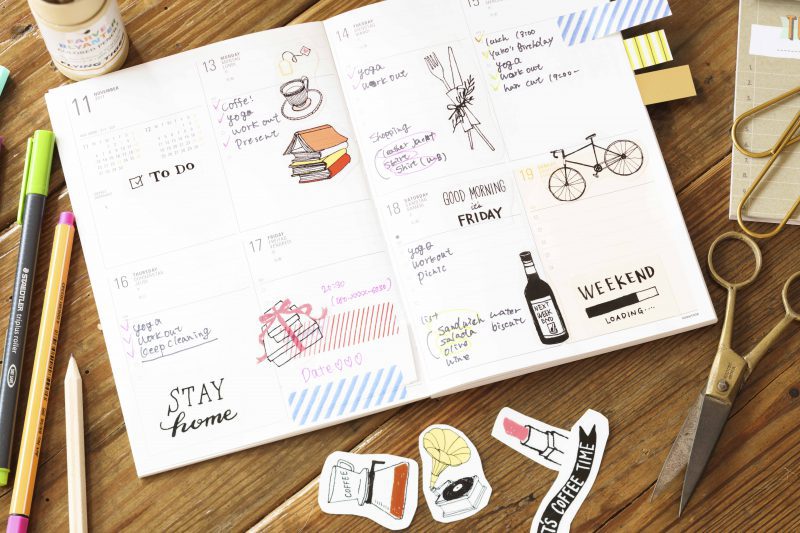 FAIVER
BLYANTER
COLORED PE
PLAYING TYME
11
NOVEMBER
2017
☑ TO DO
13
MONDAY
Coffe!
yoga
work out
Present
14
TUESDAY
yoga
work out
Shopping
shirt
shirt (U-B)
15
lunch 13:00
Yuko's Birthday
yoga
work out
hair cut 19:00~
16
THURSDAY
yoga
work out
deep cleaning
STAY
home
17
FRIDAY
20:30
Date♡♡♡
18
SATURDAY
GOOD MORNING
it's
FRIDAY
yoga
workout
picnic
list
Sandwich water
salada biscuit
olive
wine
NEXT
WEEK
END
19
SUNDAY
WEEKEND
LOADING....
STAEDTLER triplus roller
COFFEE
T'S COFFEE TIME